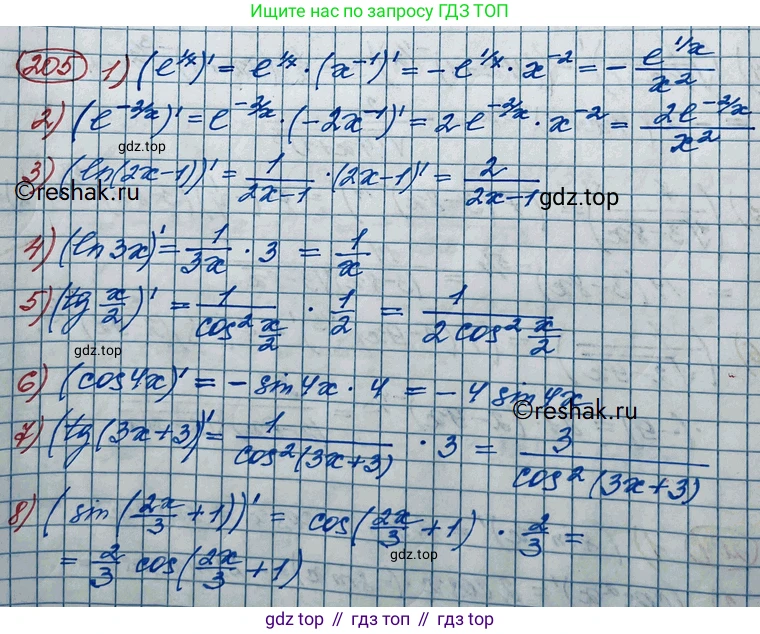 Ищите нас по запросу ГДЗ ТОП
205 1) (e^{1/x})' = e^{1/x} · (x^{-1})' = -e^{1/x} · x^{-2} = - \frac{e^{1/x}}{x^2}
2) (e^{-2/x})' = e^{-2/x} · (-2x^{-1})' = 2e^{-2/x} · x^{-2} = \frac{2e^{-2/x}}{x^2}
gdz.top
3) (ln(2x-1))' = \frac{1}{2x-1} · (2x-1)' = \frac{2}{2x-1}
©reshak.ru
gdz.top
4) (ln 3x)' = \frac{1}{3x} · 3 = \frac{1}{x}
5) (tg \frac{x}{2})' = \frac{1}{cos^2 \frac{x}{2}} · \frac{1}{2} = \frac{1}{2 cos^2 \frac{x}{2}}
gdz.top
6) (cos 4x)' = - sin 4x · 4 = - 4 sin 4x
©reshak.ru
7) (tg (3x+3))' = \frac{1}{cos^2 (3x+3)} · 3 = \frac{3}{cos^2 (3x+3)}
8) (sin (\frac{2x}{3} + 1))' = cos (\frac{2x}{3} + 1) · \frac{2}{3} =
= \frac{2}{3} cos (\frac{2x}{3} + 1)
gdz.top
gdz.top // гдз.топ // gdz.top // гдз.топ